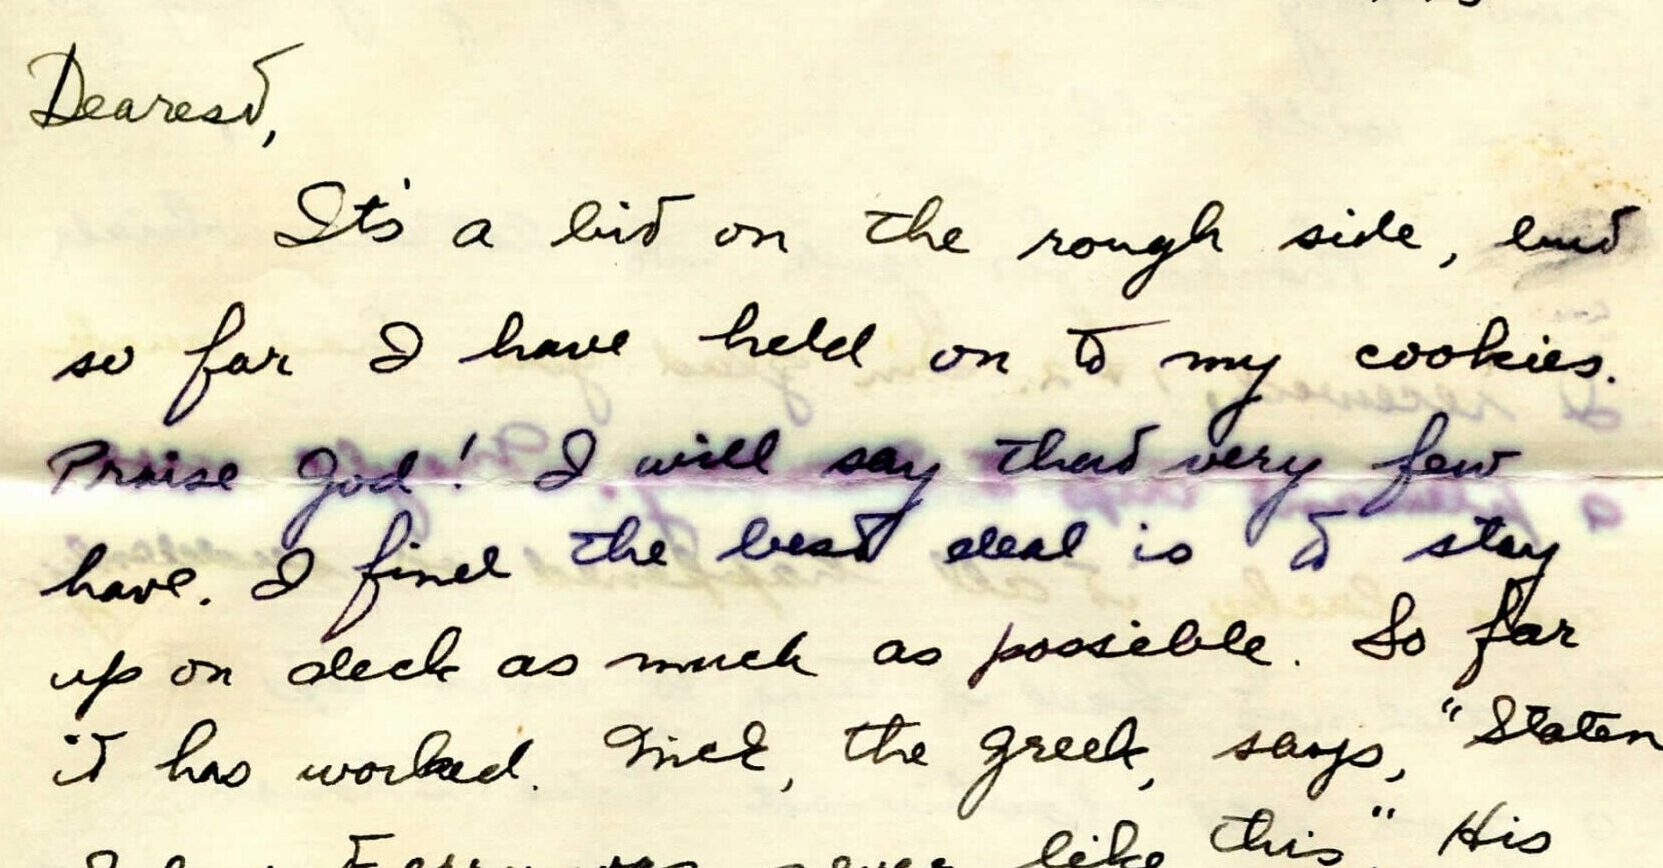 Dearest,
It's a bit on the rough side, but
so far I have held on to my cookies.
Praise God! I will say that very few
have. I find the best deal is to stay
up on deck as much as possible. So far
it has worked. Nick, the Greek, says, "Staten
Island Ferry was never like this." His